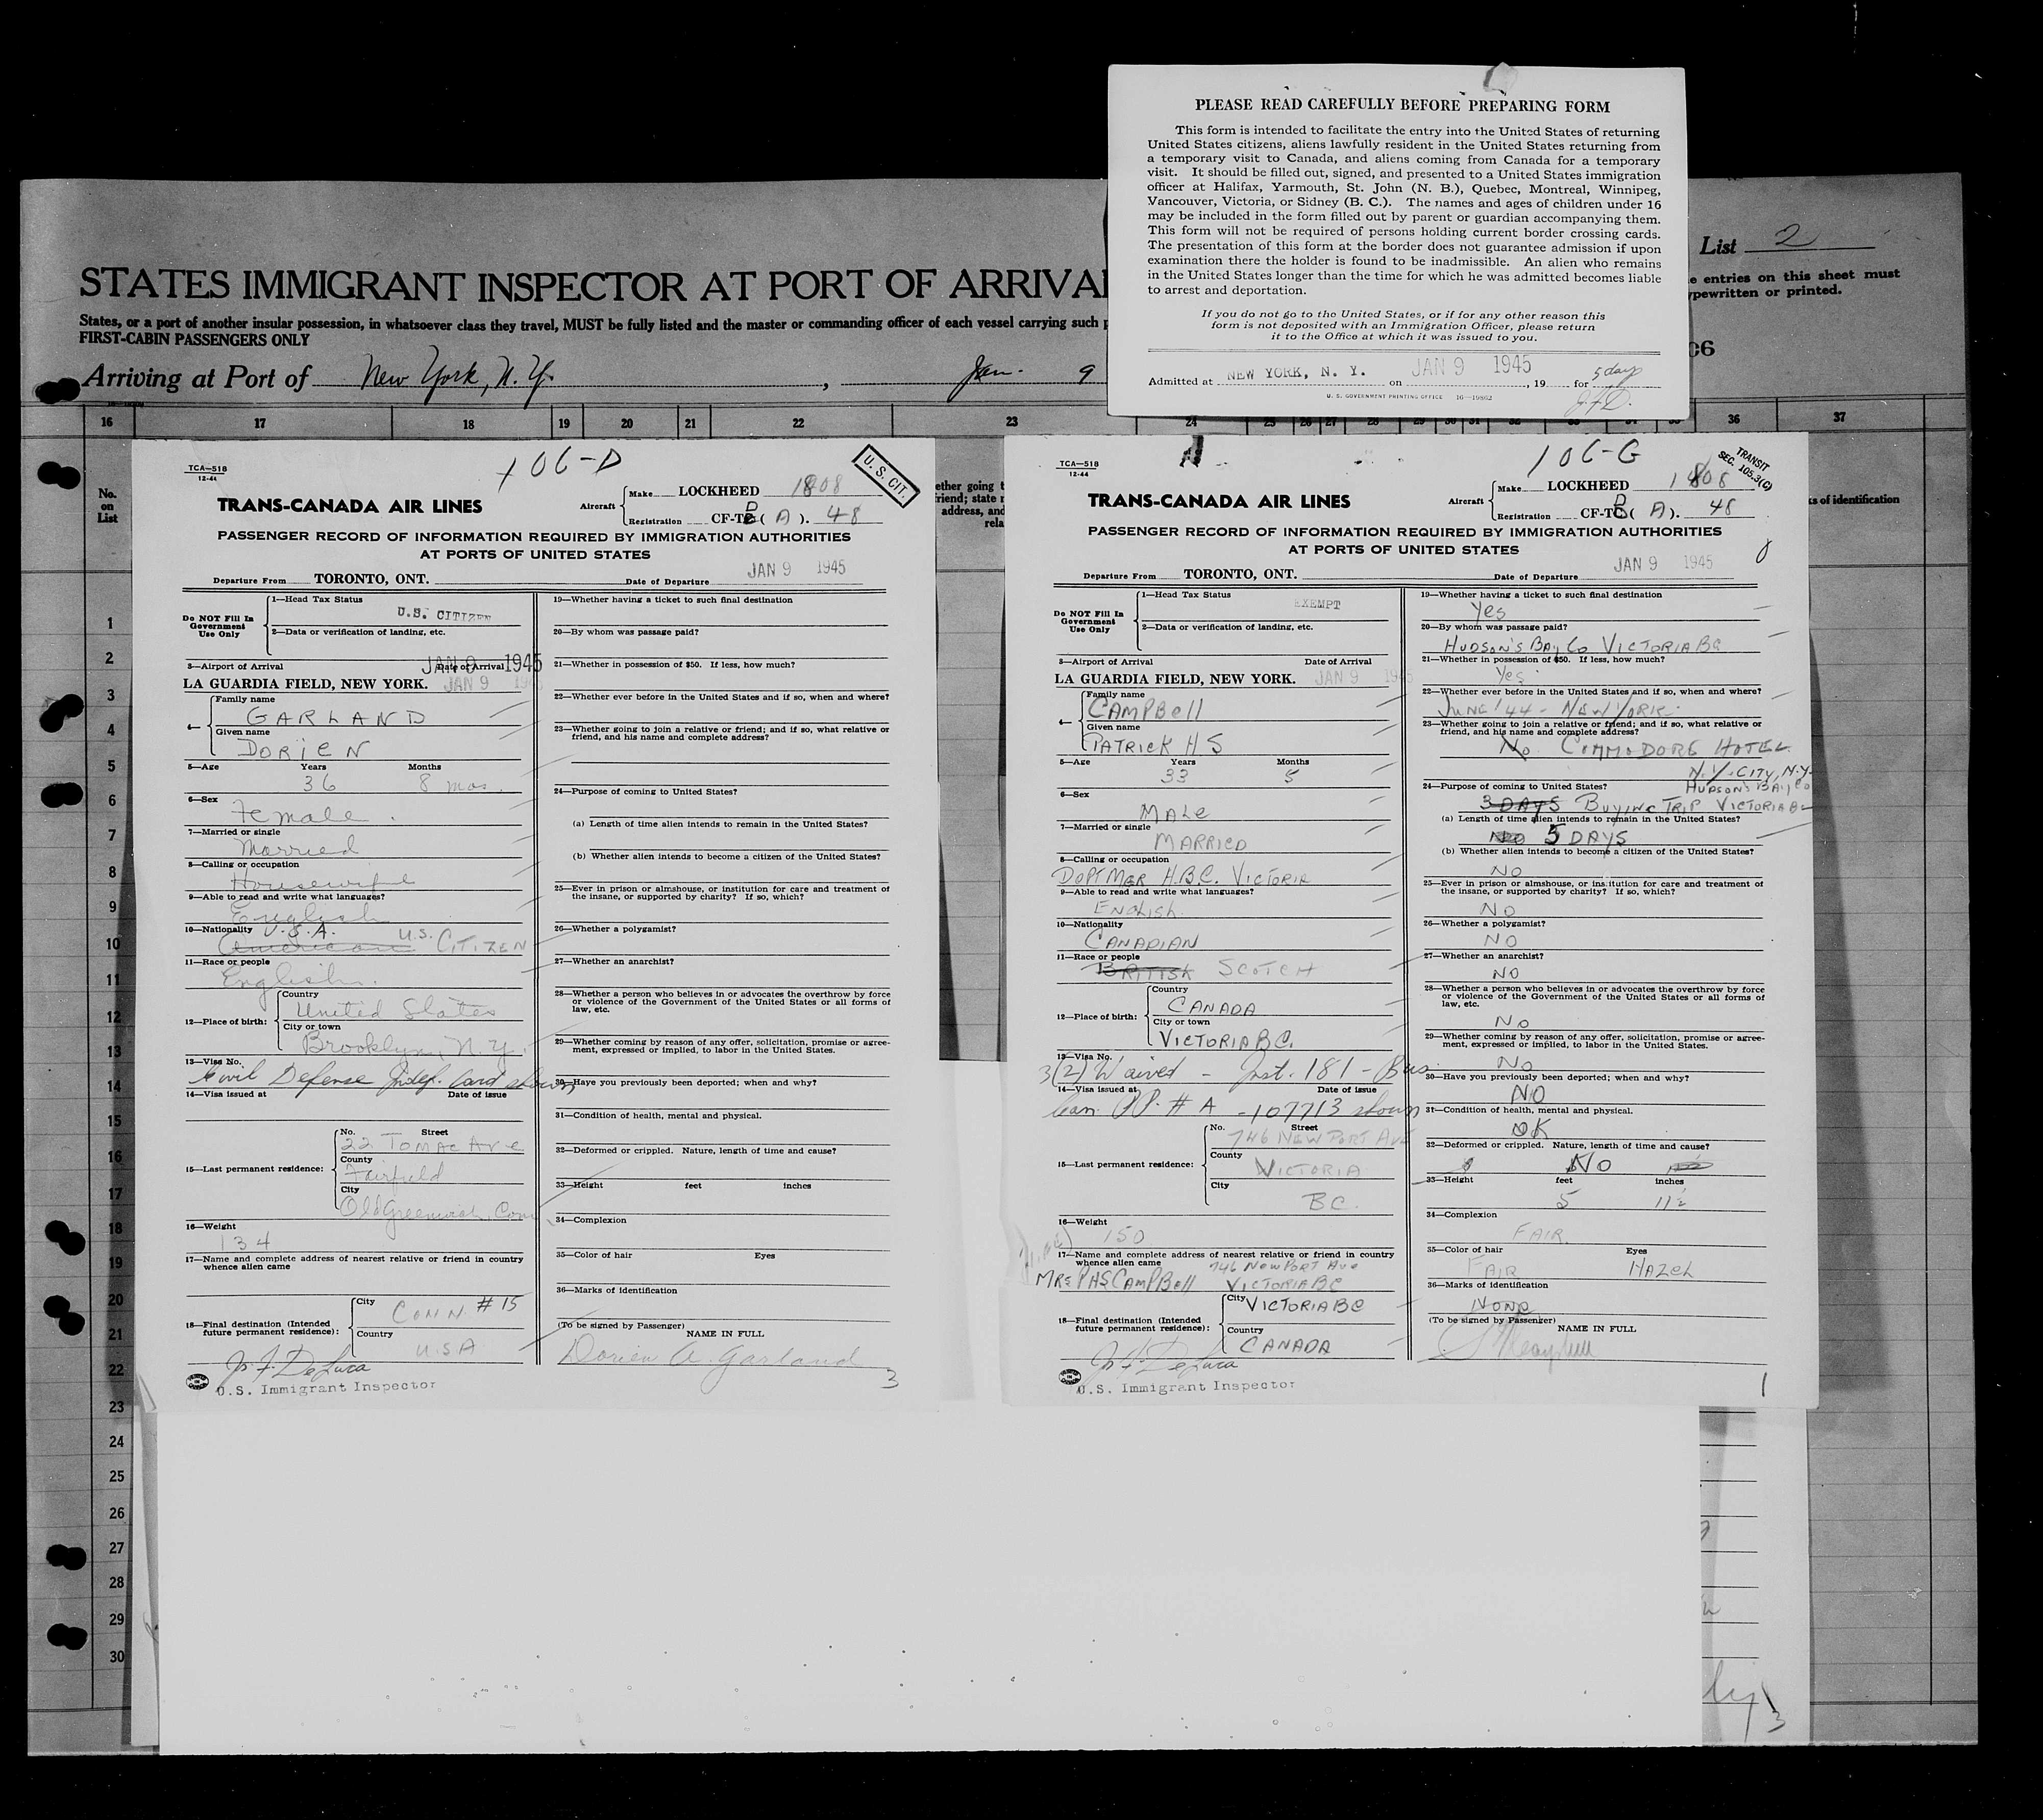 PLEASE READ CAREFULLY BEFORE PREPARING FORM
This form is intended to facilitate the entry into the United States of returning
United States citizens, aliens lawfully resident in the United States returning from
a temporary visit to Canada, and aliens coming from Canada for a temporary
visit. It should be filled out, signed, and presented to a United States immigration
officer at Halifax, Yarmouth, St. John (N. B.), Quebec, Montreal, Winnipeg,
Vancouver, Victoria, or Sidney (B. C.). The names and ages of children under 16
may be included in the form filled out by parent or guardian accompanying them.
This form will not be required of persons holding current border crossing cards.
The presentation of this form at the border does not guarantee admission if upon
examination there the holder is found to be inadmissible. An alien who remains
in the United States longer than the time for which he was admitted becomes liable
to arrest and deportation.
If you do not go to the United States, or if for any other reason this
form is not deposited with an Immigration Officer, please return
it to the Office at which it was issued to you.
Admitted at NEW YORK, N. Y. on JAN 9 1945, 19 for 5 days
U. S. GOVERNMENT PRINTING OFFICE 16—19862
J.F.D.
List 2
STATES IMMIGRANT INSPECTOR AT PORT OF ARRIVAL
e entries on this sheet must
ypewritten or printed.
States, or a port of another insular possession, in whatsoever class they travel, MUST be fully listed and the master or commanding officer of each vessel carrying such p
FIRST-CABIN PASSENGERS ONLY
Arriving at Port of New York, N. Y., Jan. 9
16 17 18 19 20 21 22 23 24 25 26 27 28 29 30 31 32 33 34 35 36 37
No. on List
ether going t
riend; state r
address, and
rela
s of identification
1
2
3
4
5
6
7
8
9
10
11
12
13
14
15
16
17
18
19
20
21
22
23
24
25
26
27
28
29
30
106-D
U. S. CIT.
TCA—518
12-44
TRANS-CANADA AIR LINES
Aircraft Make LOCKHEED 1808
Registration CF-TD ( A ). 48
PASSENGER RECORD OF INFORMATION REQUIRED BY IMMIGRATION AUTHORITIES
AT PORTS OF UNITED STATES
Departure From TORONTO, ONT. Date of Departure JAN 9 1945
Do NOT Fill In Government Use Only
1—Head Tax Status U.S. CITIZEN
2—Data or verification of landing, etc.
3—Airport of Arrival Date of Arrival JAN 9 1945
LA GUARDIA FIELD, NEW YORK. JAN 9 194
4— Family name GARLAND
Given name DORIEN
5—Age Years 36 Months 8 mos.
6—Sex Female
7—Married or single Married
8—Calling or occupation Housewife
9—Able to read and write what languages? English
10—Nationality U.S.A. American U.S. CITIZEN
11—Race or people English
12—Place of birth: Country United States
City or town Brooklyn, N.Y.
13—Visa No. Civil Defense Idef. Card shown
14—Visa issued at Date of issue
15—Last permanent residence: No. Street 22 TOMAC Ave
County Fairfield
City Old Greenwich, Conn
16—Weight 134
17—Name and complete address of nearest relative or friend in country
whence alien came
18—Final destination (Intended future permanent residence): City CONN #15
Country USA
J. F. DeLuca
U.S. Immigrant Inspector
19—Whether having a ticket to such final destination
20—By whom was passage paid?
21—Whether in possession of $50. If less, how much?
22—Whether ever before in the United States and if so, when and where?
23—Whether going to join a relative or friend; and if so, what relative or
friend, and his name and complete address?
24—Purpose of coming to United States?
(a) Length of time alien intends to remain in the United States?
(b) Whether alien intends to become a citizen of the United States?
25—Ever in prison or almshouse, or institution for care and treatment of
the insane, or supported by charity? If so, which?
26—Whether a polygamist?
27—Whether an anarchist?
28—Whether a person who believes in or advocates the overthrow by force
or violence of the Government of the United States or all forms of
law, etc.
29—Whether coming by reason of any offer, solicitation, promise or agree-
ment, expressed or implied, to labor in the United States.
30—Have you previously been deported; when and why?
31—Condition of health, mental and physical.
32—Deformed or crippled. Nature, length of time and cause?
33—Height feet inches
34—Complexion
35—Color of hair Eyes
36—Marks of identification
(To be signed by Passenger) NAME IN FULL
Dorien A Garland
3
106-G
TRANSIT
SEC. 105.3(C)
TCA—518
12-44
TRANS-CANADA AIR LINES
Aircraft Make LOCKHEED 1808
Registration CF-TD ( A ). 48
PASSENGER RECORD OF INFORMATION REQUIRED BY IMMIGRATION AUTHORITIES
AT PORTS OF UNITED STATES
Departure From TORONTO, ONT. Date of Departure JAN 9 1945
Do NOT Fill In Government Use Only
1—Head Tax Status EXEMPT
2—Data or verification of landing, etc.
3—Airport of Arrival Date of Arrival
LA GUARDIA FIELD, NEW YORK. JAN 9 1945
4— Family name CAMPBELL
Given name PATRICK H S
5—Age Years 33 Months 5
6—Sex MALE
7—Married or single MARRIED
8—Calling or occupation DEPT MGR H.B.C. VICTORIA
9—Able to read and write what languages? ENGLISH
10—Nationality CANADIAN
11—Race or people BRITISH SCOTCH
12—Place of birth: Country CANADA
City or town VICTORIA B.C.
13—Visa No. 3(2) Waived - Inst. 181 - Bus.
14—Visa issued at Date of issue
Can. P.P. # A -107713 shown
15—Last permanent residence: No. Street 746 NEWPORT AVE
County VICTORIA
City BC.
16—Weight 150
17—Name and complete address of nearest relative or friend in country
whence alien came 746 NEWPORT AVE
MRS PHS CAMPBELL VICTORIA BC
18—Final destination (Intended future permanent residence): City VICTORIA BC
Country CANADA
J. F. DeLuca
U.S. Immigrant Inspector
19—Whether having a ticket to such final destination
Yes
20—By whom was passage paid?
HUDSON'S BAY Co VICTORIA BC
21—Whether in possession of $50. If less, how much?
Yes
22—Whether ever before in the United States and if so, when and where?
JUNE '44 - NEW YORK
23—Whether going to join a relative or friend; and if so, what relative or
friend, and his name and complete address?
No COMMODORE HOTEL
N.Y. CITY, N.Y.
24—Purpose of coming to United States? HUDSON'S BAY Co
3 DAYS BUYING TRIP VICTORIA BC
(a) Length of time alien intends to remain in the United States?
NO 5 DAYS
(b) Whether alien intends to become a citizen of the United States?
NO
25—Ever in prison or almshouse, or institution for care and treatment of
the insane, or supported by charity? If so, which?
NO
26—Whether a polygamist?
NO
27—Whether an anarchist?
NO
28—Whether a person who believes in or advocates the overthrow by force
or violence of the Government of the United States or all forms of
law, etc.
NO
29—Whether coming by reason of any offer, solicitation, promise or agree-
ment, expressed or implied, to labor in the United States.
No
30—Have you previously been deported; when and why?
NO
31—Condition of health, mental and physical.
OK
32—Deformed or crippled. Nature, length of time and cause?
NO
33—Height feet inches
5 11½
34—Complexion
FAIR
35—Color of hair Eyes
FAIR HAZEL
36—Marks of identification
NONE
(To be signed by Passenger) NAME IN FULL
1
3